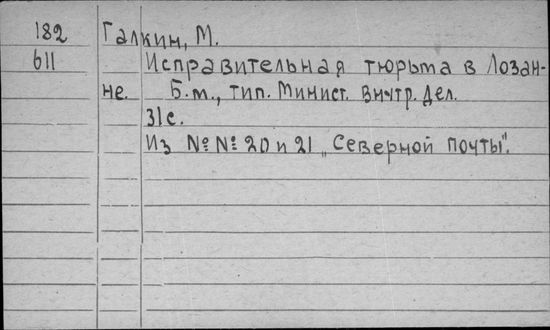 182 Галкин, М.
611 Исправительная тюрьма в Лозан-
не. Б.м., тип. Минист. внутр. дел.
31с.
Из №№ 20 и 21 „Северной почты".